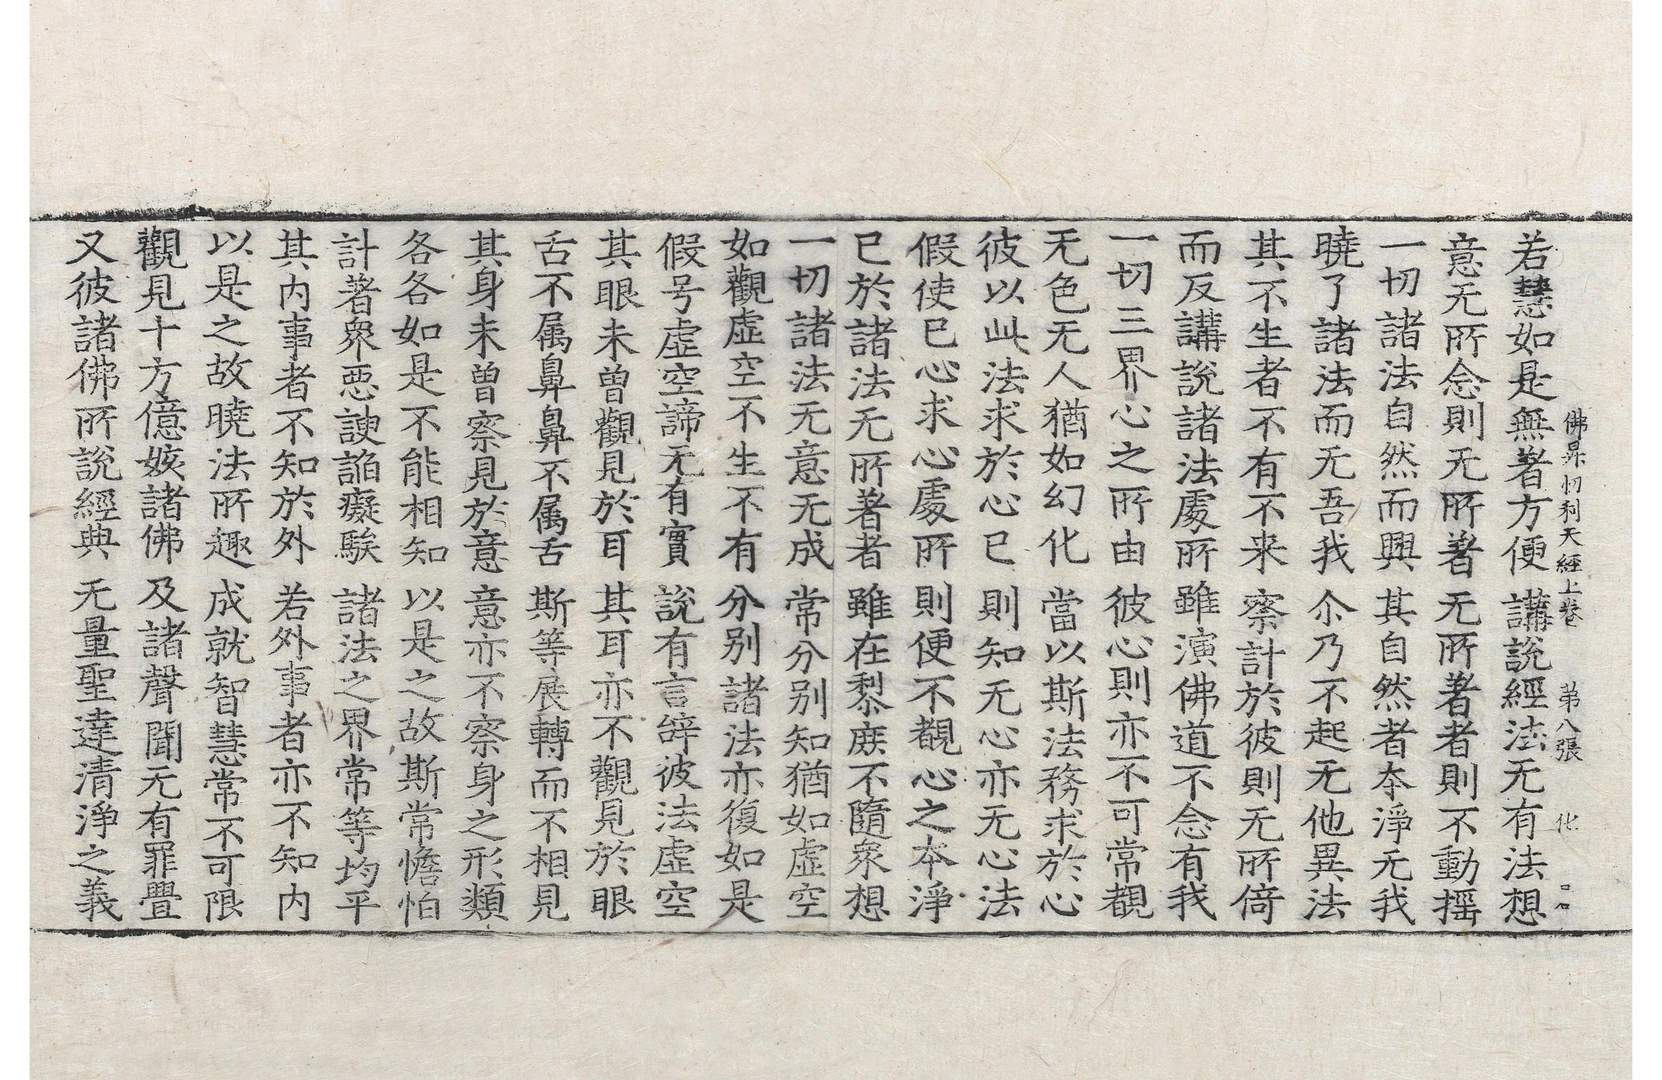 佛昇忉利天經上卷 第八張 化
若慧如是無著方便 講說經法无有法想
意无所念則无所著 无所著者則不動揺
一切諸法自然而興 其自然者夲淨无我
曉了諸法而无吾我 尒乃不起无他異法
其不生者不有不来 察計於彼則无所倚
而反講說諸法處所 雖演佛道不念有我
一切三界心之所由 彼心則亦不可常觀
无色无人猶如幻化 當以斯法務求於心
彼以此法求於心已 則知无心亦无心法
假使已心求心處所 則便不觀心之夲淨
已於諸法无所著者 雖在黎庶不隨衆想
一切諸法无意无成 常分別知猶如虛空
如觀虛空不生不有 分別諸法亦復如是
假号虛空諦无有實 說有言辝彼法虛空
其眼未曾觀見於耳 其耳亦不觀見於眼
舌不属鼻鼻不属舌 斯等展轉而不相見
其身未曾察見於意 意亦不察身之形類
各各如是不能相知 以是之故斯常憺怕
計著衆惡諛諂癡騃 諸法之界常等均平
其内事者不知於外 若外事者亦不知内
以是之故曉法所趣 成就智慧常不可限
觀見十方億姟諸佛 及諸聲聞无有罪疊
又彼諸佛所說經典 无量聖達清淨之義